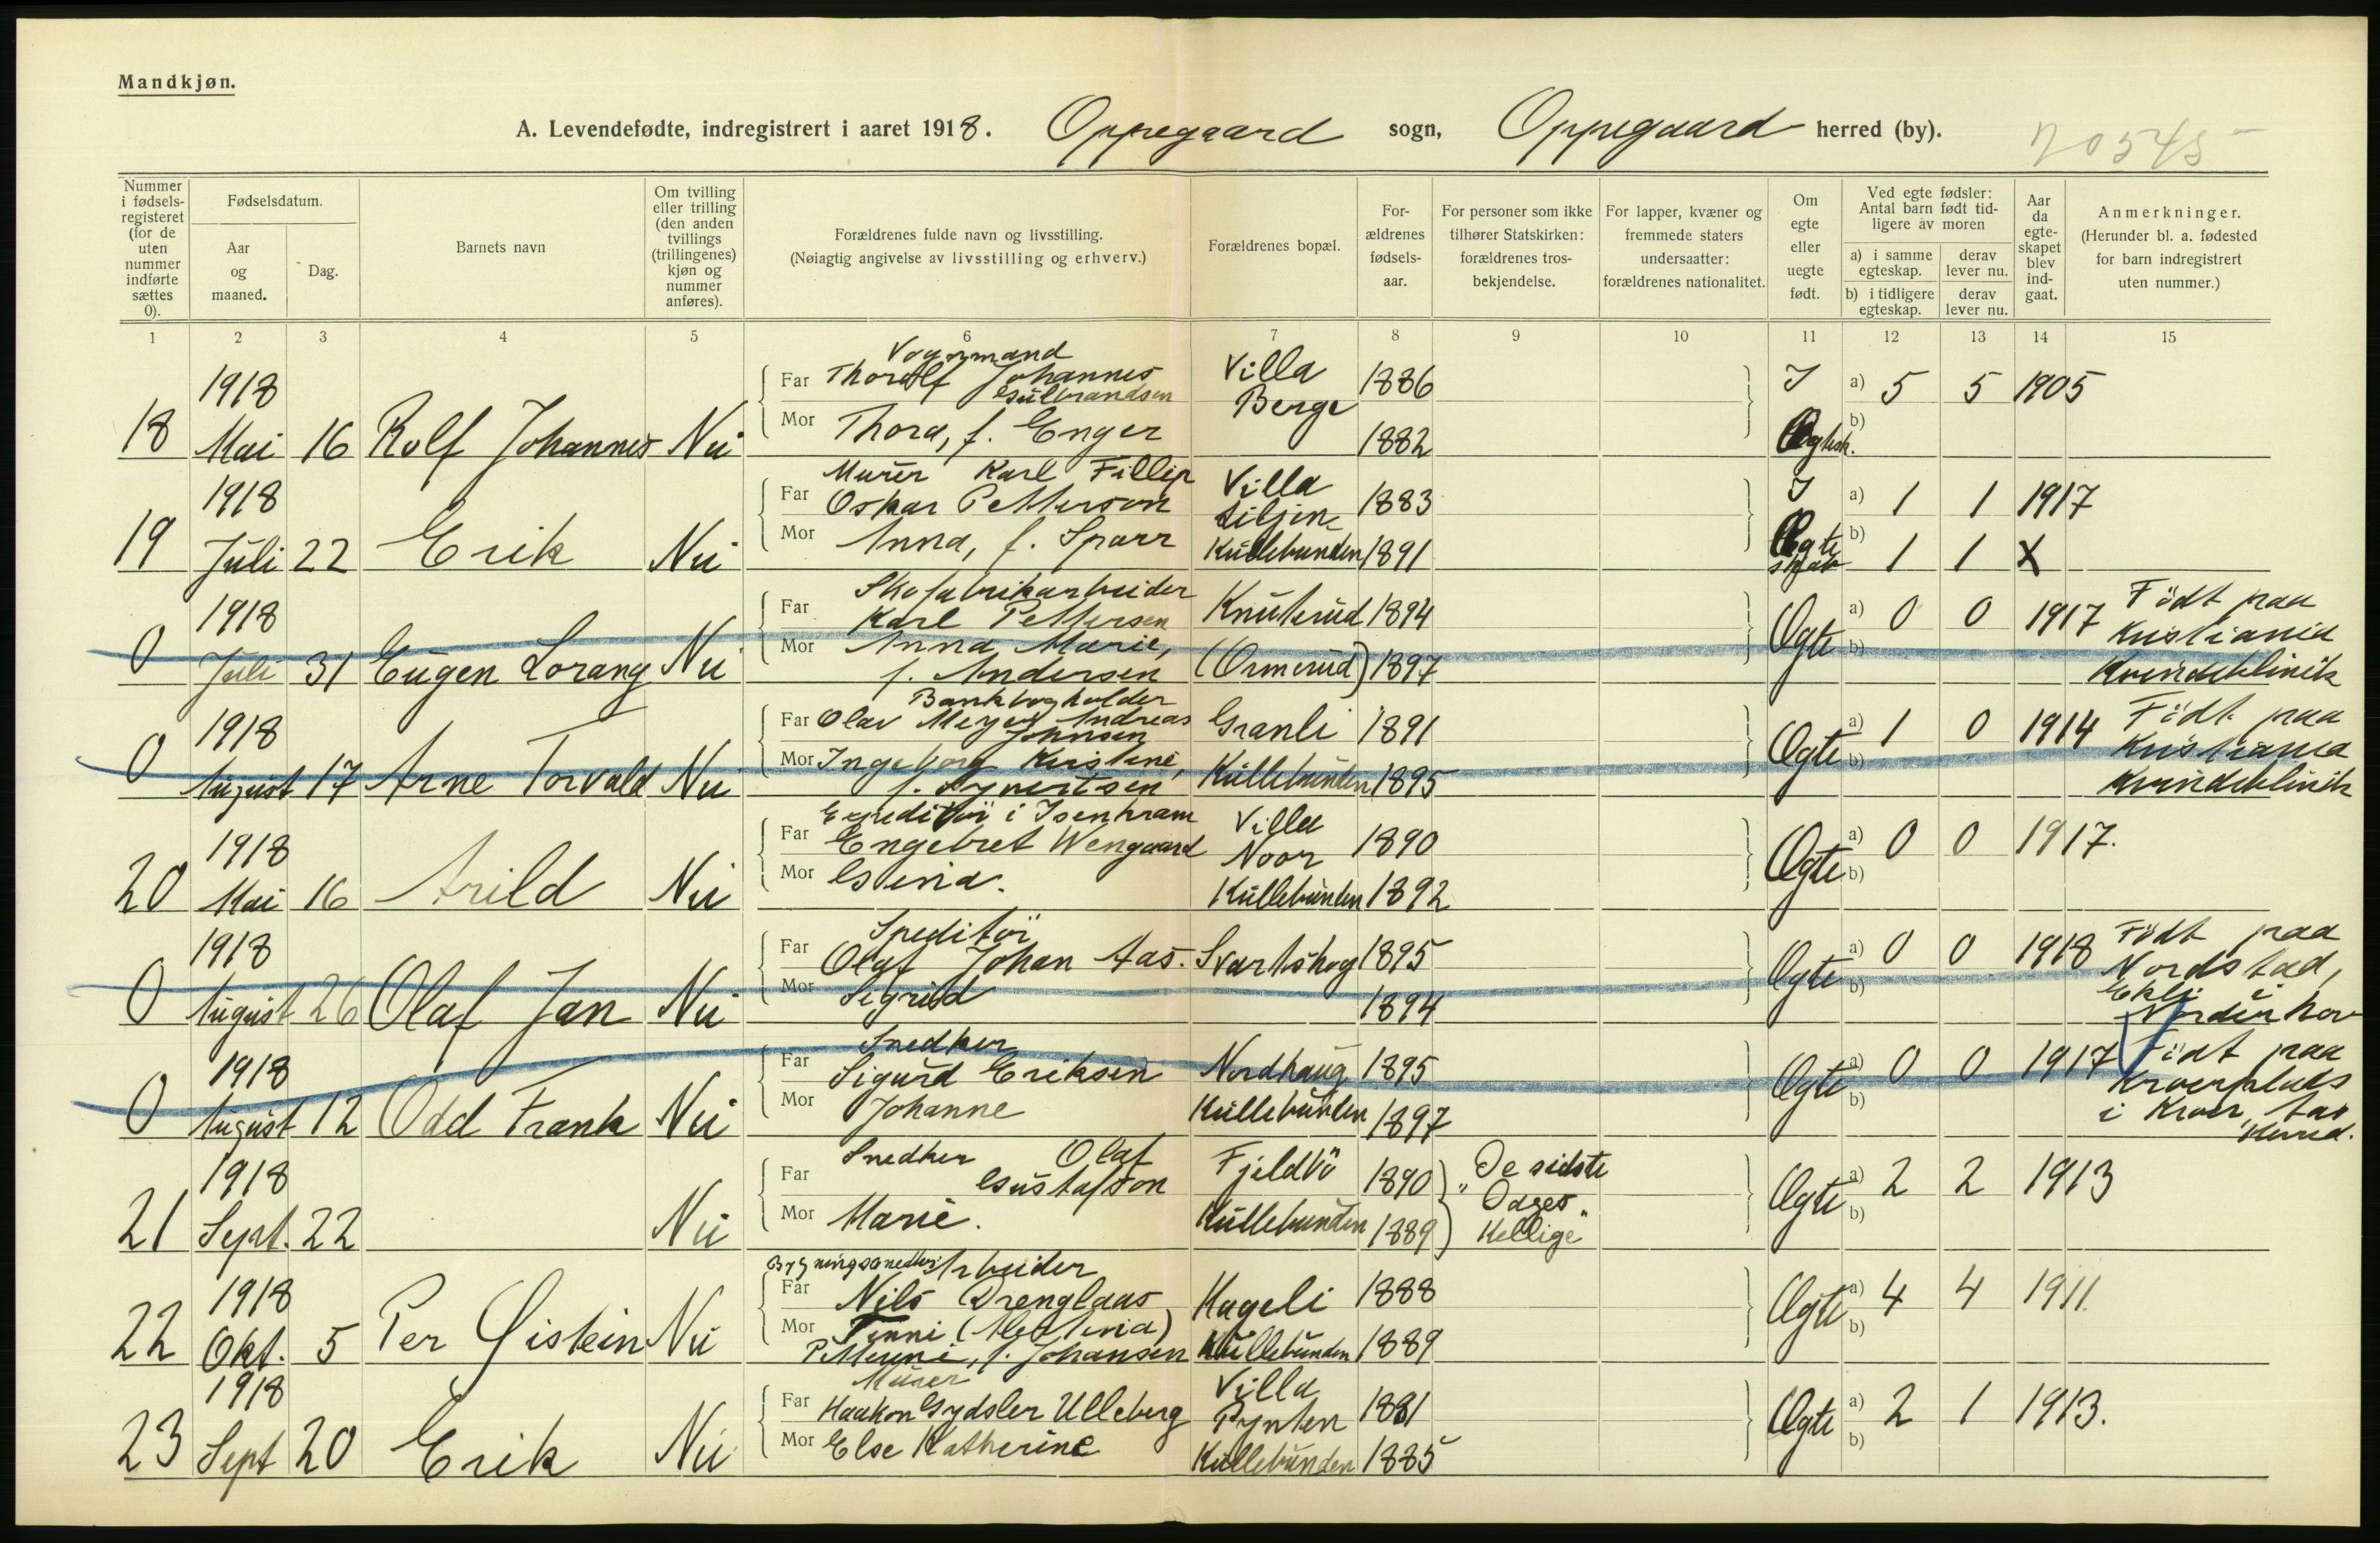 Mandkjøn.
A. Levendefødte, indregistrert i aaret 1918. Oppegaard sogn, Oppegaard herred (by). 20545
Nummer i fødsels-registeret (for de uten nummer indførte sættes 0).
Fødselsdatum.
Aar og maaned.
Dag.
Barnets navn
Om tvilling eller trilling (den anden tvillings (trillingenes) kjøn og nummer anføres).
Forældrenes fulde navn og livsstilling.
(Nøiagtig angivelse av livsstilling og erhverv.)
Forældrenes bopæl.
For-ældrenes fødsels-aar.
For personer som ikke tilhører Statskirken: forældrenes tros-bekjendelse.
For lapper, kvæner og fremmede staters undersaatter: forældrenes nationalitet.
Om egte eller uegte født.
Ved egte fødsler: Antal barn født tid-ligere av moren
a) i samme egteskap.
derav lever nu.
b) i tidligere egteskap.
derav lever nu.
Aar da egte-skapet blev ind-gaat.
Anmerkninger.
(Herunder bl. a. fødested for barn indregistrert uten nummer.)
1 2 3 4 5 6 7 8 9 10 11 12 13 14 15
Vognmand
1918 Far Thorolf Johannes Gulbrandsen Villa Berge 1886 I a) 5 5 1905
18 Mai 16 Rolf Johannes Nei Mor Thora, f. Enger 1882 Egtesk. b)
Murer Karl Fillip
1918 Far Oskar Petterson Villa Liljen 1883 I a) 1 1 1917
19 Juli 22 Erik Nei Mor Anna, f. Sparr Kullebunden 1891 Egteskab b) 1 1 X
Skofabrikarbeider
1918 Far Karl Pettersen Knuterud 1894 Egte a) 0 0 1917 Född paa Kristiania Kvindeklinik
0 Juli 31 Eugen Lorang Nei Mor Anna Marie, f. Andersen (Ormerud) 1897 b)
Bankbogholder
1918 Far Olav Meyer Andreas Johnsen Granli 1891 Egte a) 1 0 1914 Födt paa Kristiania Kvindeklinik
0 August 17 Arne Torvald Nei Mor Ingeborg Kristine, f. Syvertsen Kullebunden 1895 b)
Expeditör i Isenkram
1918 Far Engebret Wengaard Villa Noor 1890 Egte a) 0 0 1917.
20 Mai 16 Arild Nei Mor Gina. Kullebunden 1892 b)
Speditör
1918 Far Olaf Johan Aas. Svartskog 1895 Egte a) 0 0 1918 Födt paa Nordstad, Ekli i Norderhov
0 August 26 Olaf Jan Nei Mor Sigrid 1894 b)
Snedker
1918 Far Sigurd Eriksen Nordhaug 1895 Egte a) 0 0 1917 Födt paa Kroerplads i Kroer, Aas Herred.
0 August 12 Odd Frank Nei Mor Johanne Kullebunden 1897 b)
Snedker Olaf
1918 Far Gustafson Fjeldbö 1890 De sidste Egte a) 2 2 1913
21 Sept. 22 Nei Mor Marie. Kullebunden 1889 "Dages Hellige" b)
Bygningssnedker Arbeider
1918 Far Nils Drenglaas Hageli 1888 Egte a) 4 4 1911.
22 Okt. 5 Per Øistein Nei Mor Finni (Alethevia) Petterine, f. Johansen Kullebunden 1889 b)
Murer
1918 Far Haakon Gydsler Ulleberg Villa Pynten 1881 Egte a) 2 1 1913.
23 Sept 20 Erik Nei Mor Else Katherine Kullebunden 1885 b)